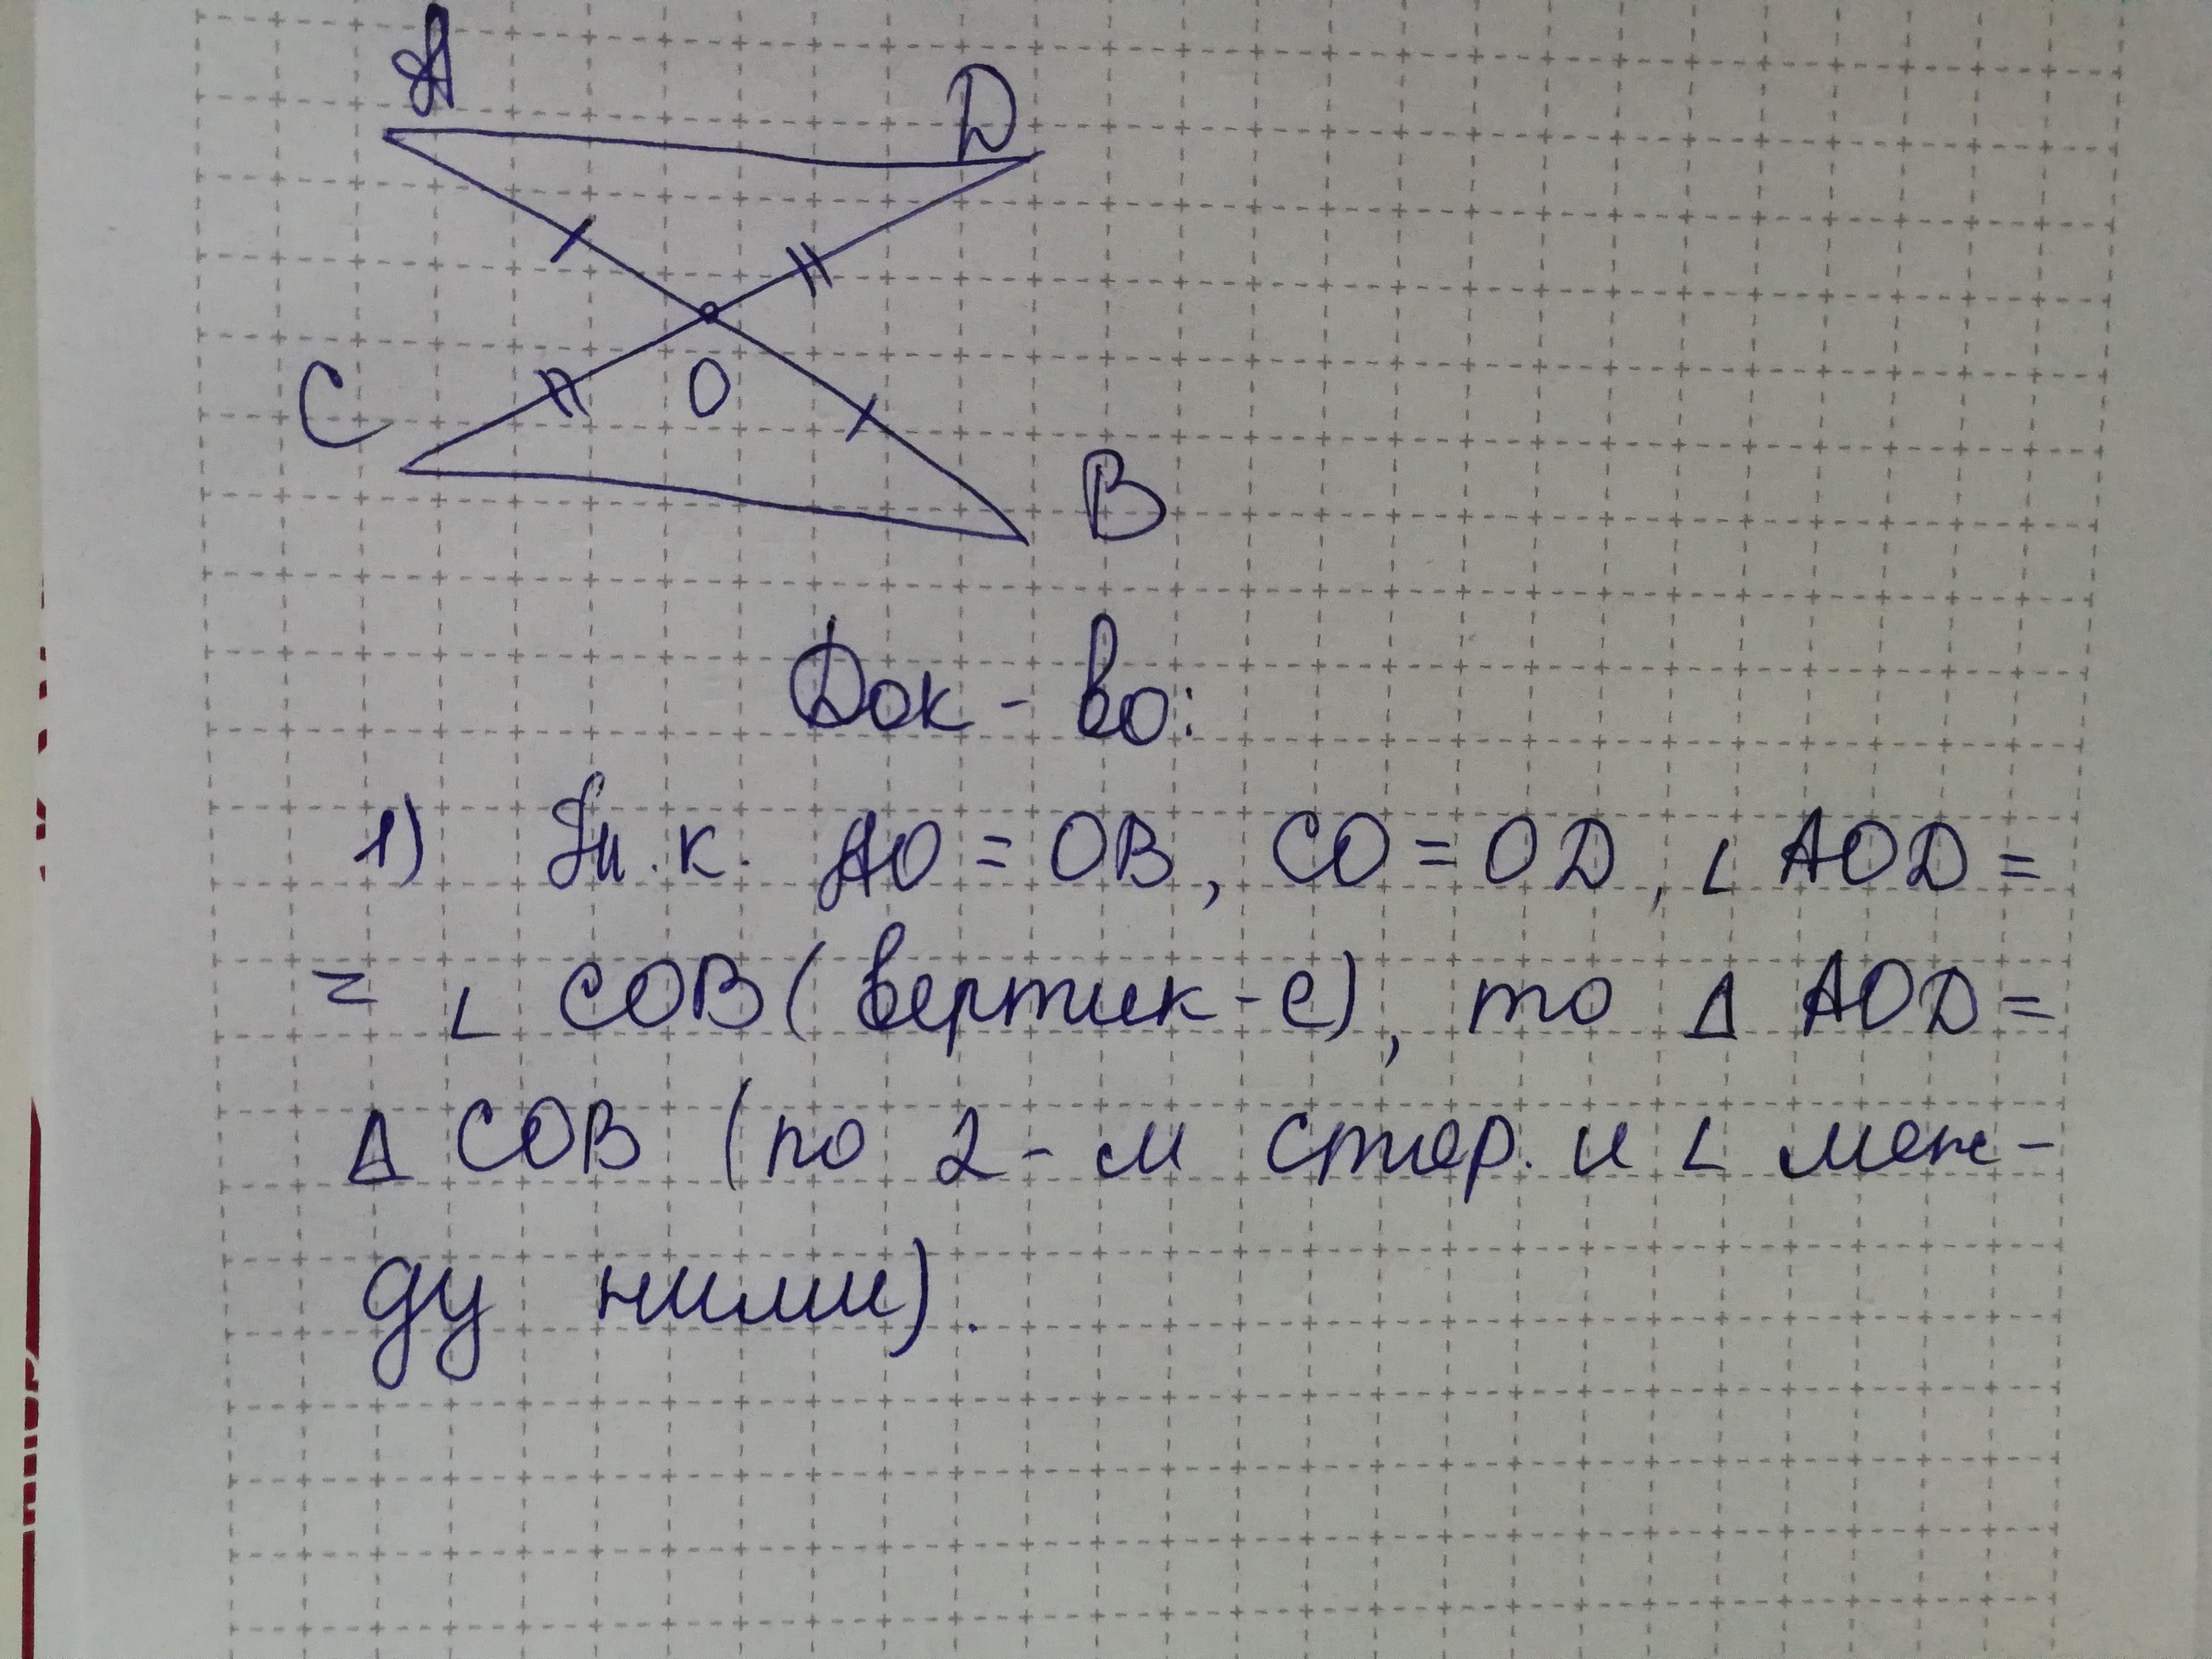 A
D
C
O
B
Док-во:
1) Т.к. AO = OB, CO = OD, ∠ AOD =
= ∠ COB (вертик-е), то Δ AOD =
Δ COB (по 2-м стор. и ∠ меж-
ду ними).